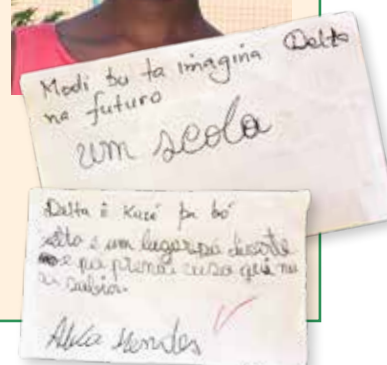 Modi bu ta imagina Delta
na futuro
um scola
Delta é Kuzé pa bó
é um lugar pa diverte
e pa prende cuza qui nu
sabia.
Mendes